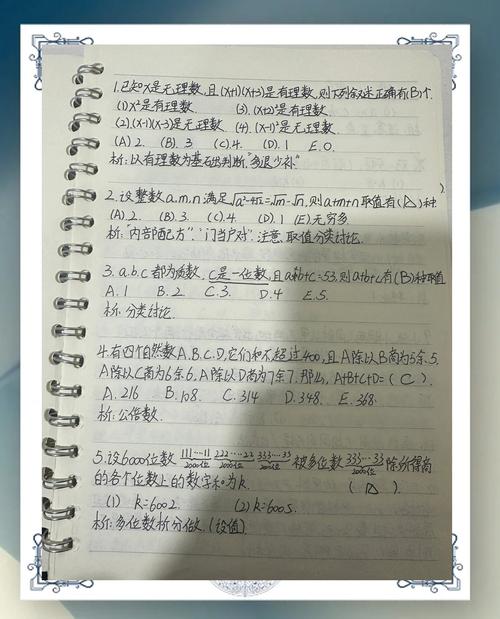 1.已知x是无理数,且(x+1)(x+3)是有理数,则下列叙述正确有(B)个.
(1)x²是有理数 (3).(x+2)²是有理数
(2).(x-1)(x-3)是无理数 (4).(x-1)²是无理数
(A)2. (B).3 (C).4. (D).1 E.0.
析:以有理数为基础判断,"多退少补"
2.设整数a.m.n满足√a²-4√2=√m-√n,则a+m+n取值有(A)种
(A).2. (B).3. (C).4 (D).1 (E)无穷多
析:"内部配方".'门当户对'.注意.取值分类讨论.
3.a.b.c都为质数.C是一位数,且a×b+c=53.则a+b+c有(B)种取值
A.1 B.2 C.3. D.4 E.5.
析.分类讨论.
4.有四个自然数A.B.C.D,它们和不超过400,且A除以B商为5余5.
A除以C商为6余6.A除以D商为7余7.那么,A+B+C+D=(C).
A.216 B.108. C.314 D.348. E.368.
析:公倍数.
5.设6000位数111…11 222…22 333…33被多位数333…33除所得商
2000位 2000位 2000位 2000位
的各个位数上的数字和为k. (A).
(1) k=6002. (2)k=6005.
析:多位数析分做.(设值)